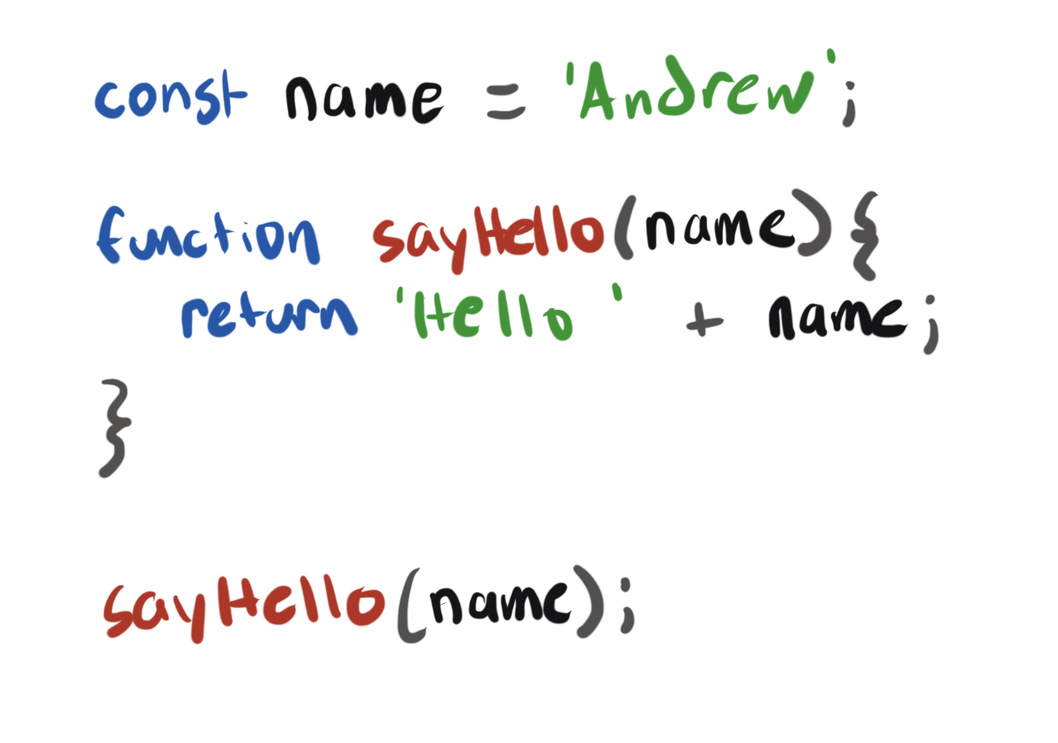 const name = 'Andrew';
function sayHello(name){
return 'Hello ' + name;
}
sayHello(name);